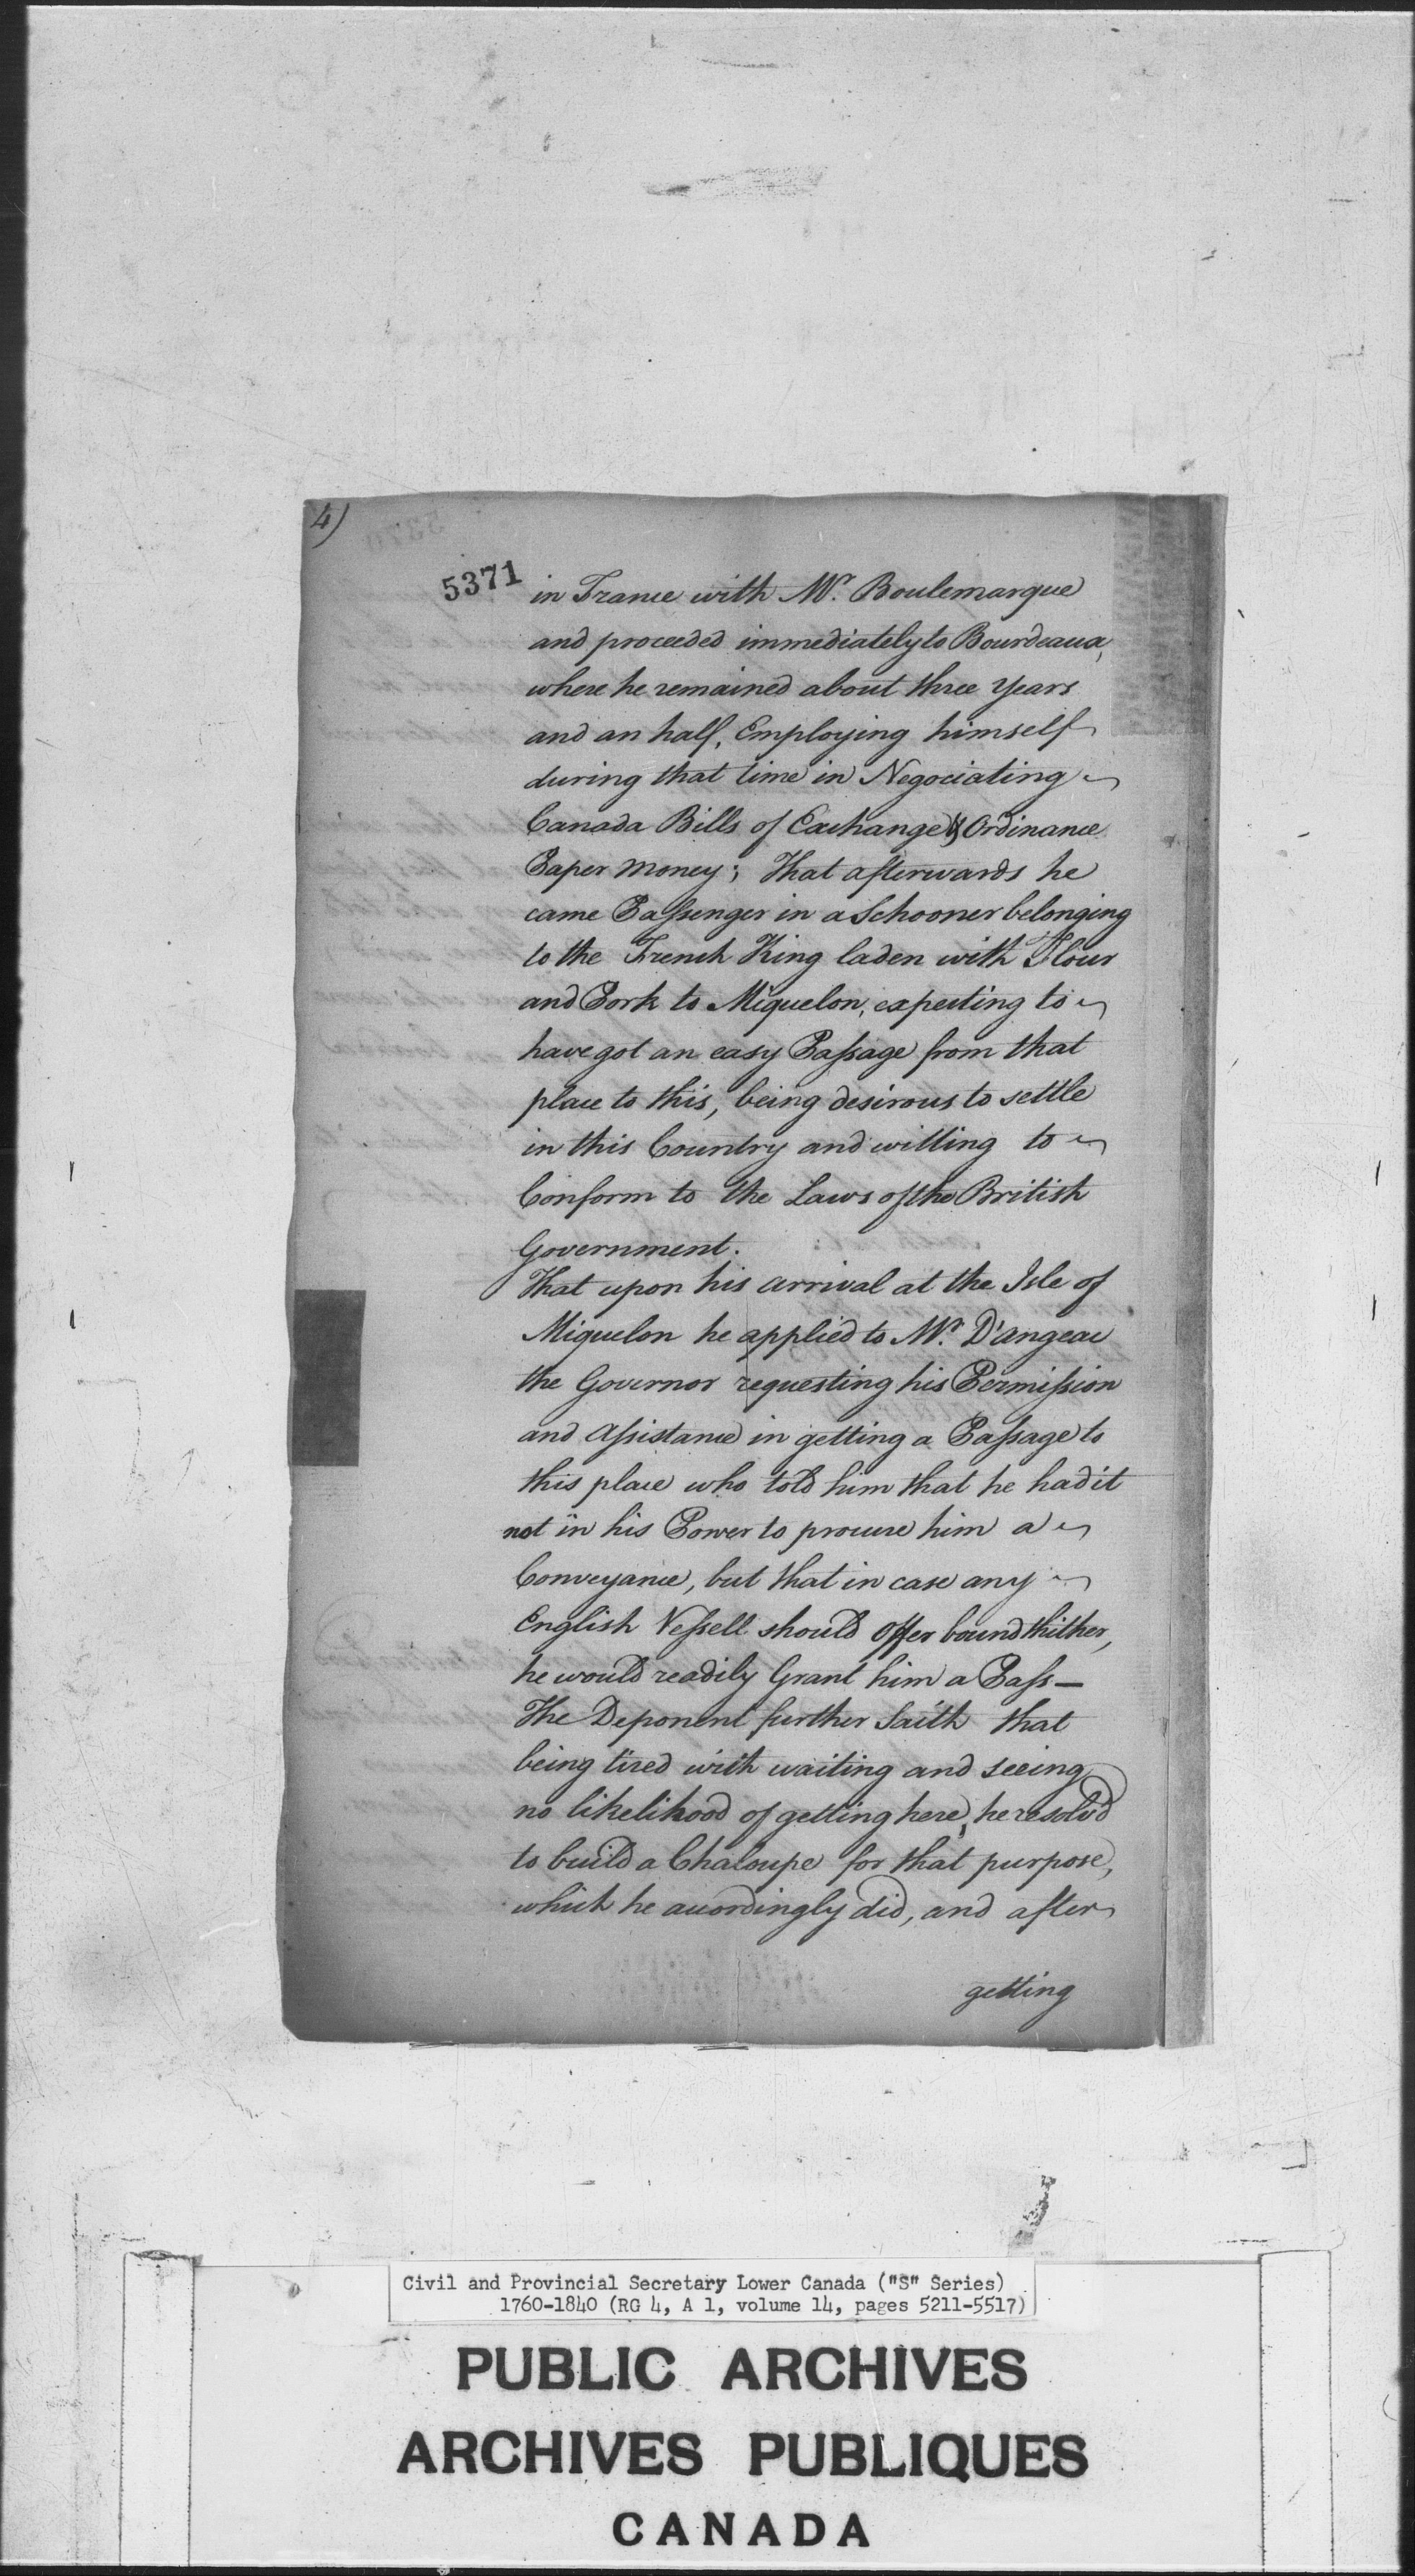 4)
5371
in France with Mr. Boulemarque
and proceeded immediately to Bourdeaux,
where he remained about three Years
and an half, Employing himself
during that time in Negociating
Canada Bills of Exchange & Ordinance
Paper money; That afterwards he
came Passenger in a Schooner belonging
to the French King laden with Flour
and Pork to Miquelon, expecting to
have got an easy Passage from that
place to this, being desirous to settle
in this Country and willing to
Conform to the Laws of the British
Government.
That upon his arrival at the Isle of
Miquelon he applied to Mr. D'angeac
the Governor requesting his Permission
and Assistance in getting a Passage to
this place who told him that he had it
not in his Power to procure him a
Conveyance, but that in case any
English Vessell should Offer bound thither,
he would readily Grant him a Pass—
The Deponent further Saith that
being tired with waiting and seeing
no likelihood of getting here, he resolv'd
to build a Chaloupe for that purpose,
which he accordingly did, and after
getting
Civil and Provincial Secretary Lower Canada ("S" Series)
1760-1840 (RG 4, A 1, volume 14, pages 5211-5517)
PUBLIC ARCHIVES
ARCHIVES PUBLIQUES
CANADA